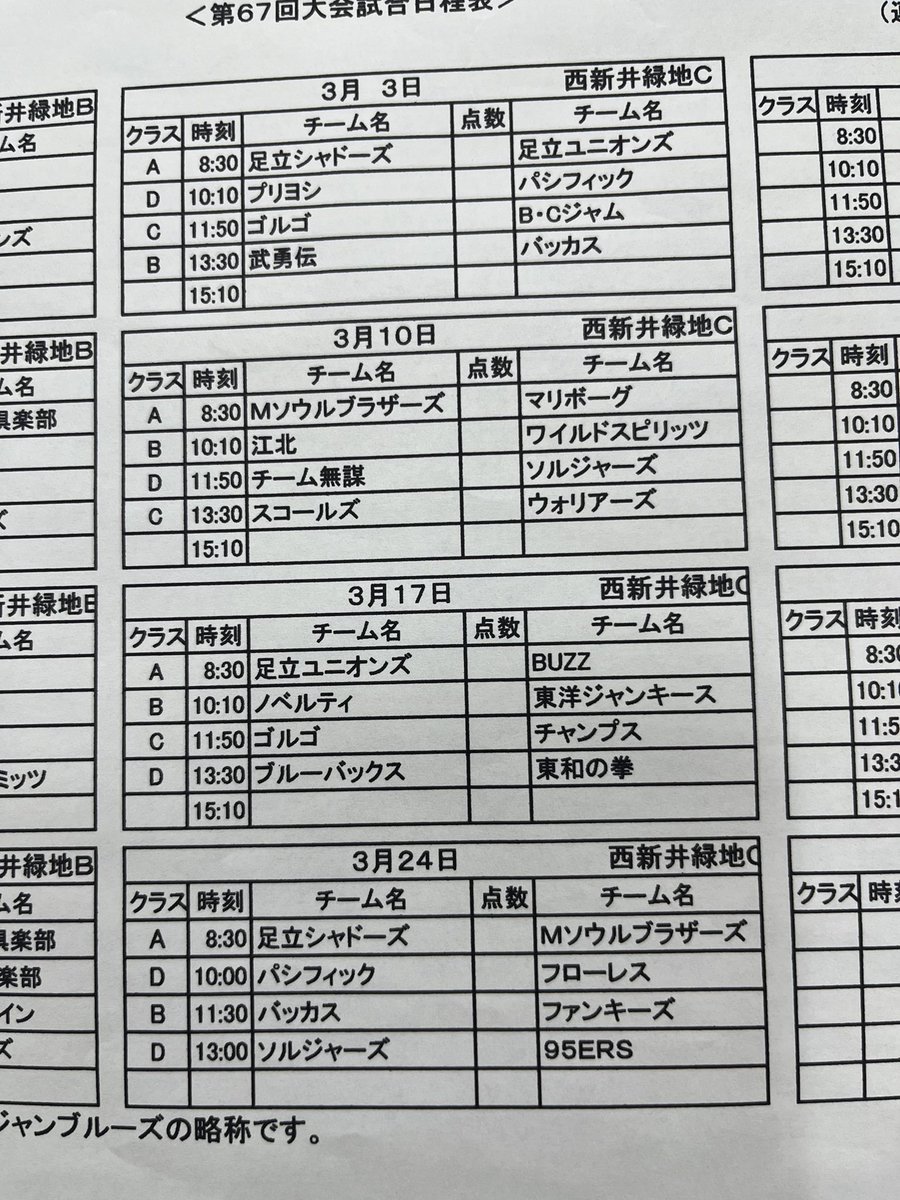 <第67回大会試合日程表>
新井緑地B
3月 3日 西新井緑地C
クラス 時刻 チーム名 点数 チーム名
A 8:30 足立シャドーズ 足立ユニオンズ
D 10:10 プリヨシ パシフィック
C 11:50 ゴルゴ B・Cジャム
B 13:30 武勇伝 バッカス
15:10
クラス 時刻
8:30
10:10
11:50
13:30
15:10
井緑地B
ム名
倶楽部
3月10日 西新井緑地C
クラス 時刻 チーム名 点数 チーム名
A 8:30 Mソウルブラザーズ マリボーグ
B 10:10 江北 ワイルドスピリッツ
D 11:50 チーム無謀 ソルジャーズ
C 13:30 スコールズ ウォリアーズ
15:10
クラス 時刻
8:30
10:10
11:50
13:30
15:10
井緑地B
ム名
ミッツ
3月17日 西新井緑地C
クラス 時刻 チーム名 点数 チーム名
A 8:30 足立ユニオンズ BUZZ
B 10:10 ノベルティ 東洋ジャンキース
C 11:50 ゴルゴ チャンプス
D 13:30 ブルーバックス 東和の拳
15:10
クラス 時刻
8:30
10:10
11:5
13:3
15:1
井緑地B
ム名
倶楽部
楽部
イン
ズ
3月24日 西新井緑地C
クラス 時刻 チーム名 点数 チーム名
A 8:30 足立シャドーズ Mソウルブラザーズ
D 10:00 パシフィック フローレス
B 11:30 バッカス ファンキーズ
D 13:00 ソルジャーズ 95ERS
クラス 時刻
ジャンブルーズの略称です。